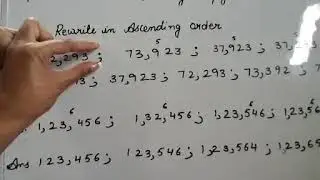 Rewrite in Ascending order
5 5 5
2,293 ; 73,923 ; 37,923 ; 37,293
3 ; 37,923 ; 72,293 ; 73,392 ; 7
6 6 6 6
1,23,456 ; 1,32,456 ; 1,23,546 ; 1,23,56
Ans 123,456 ; 123,546 ; 1,23,564 ; 1,23,65